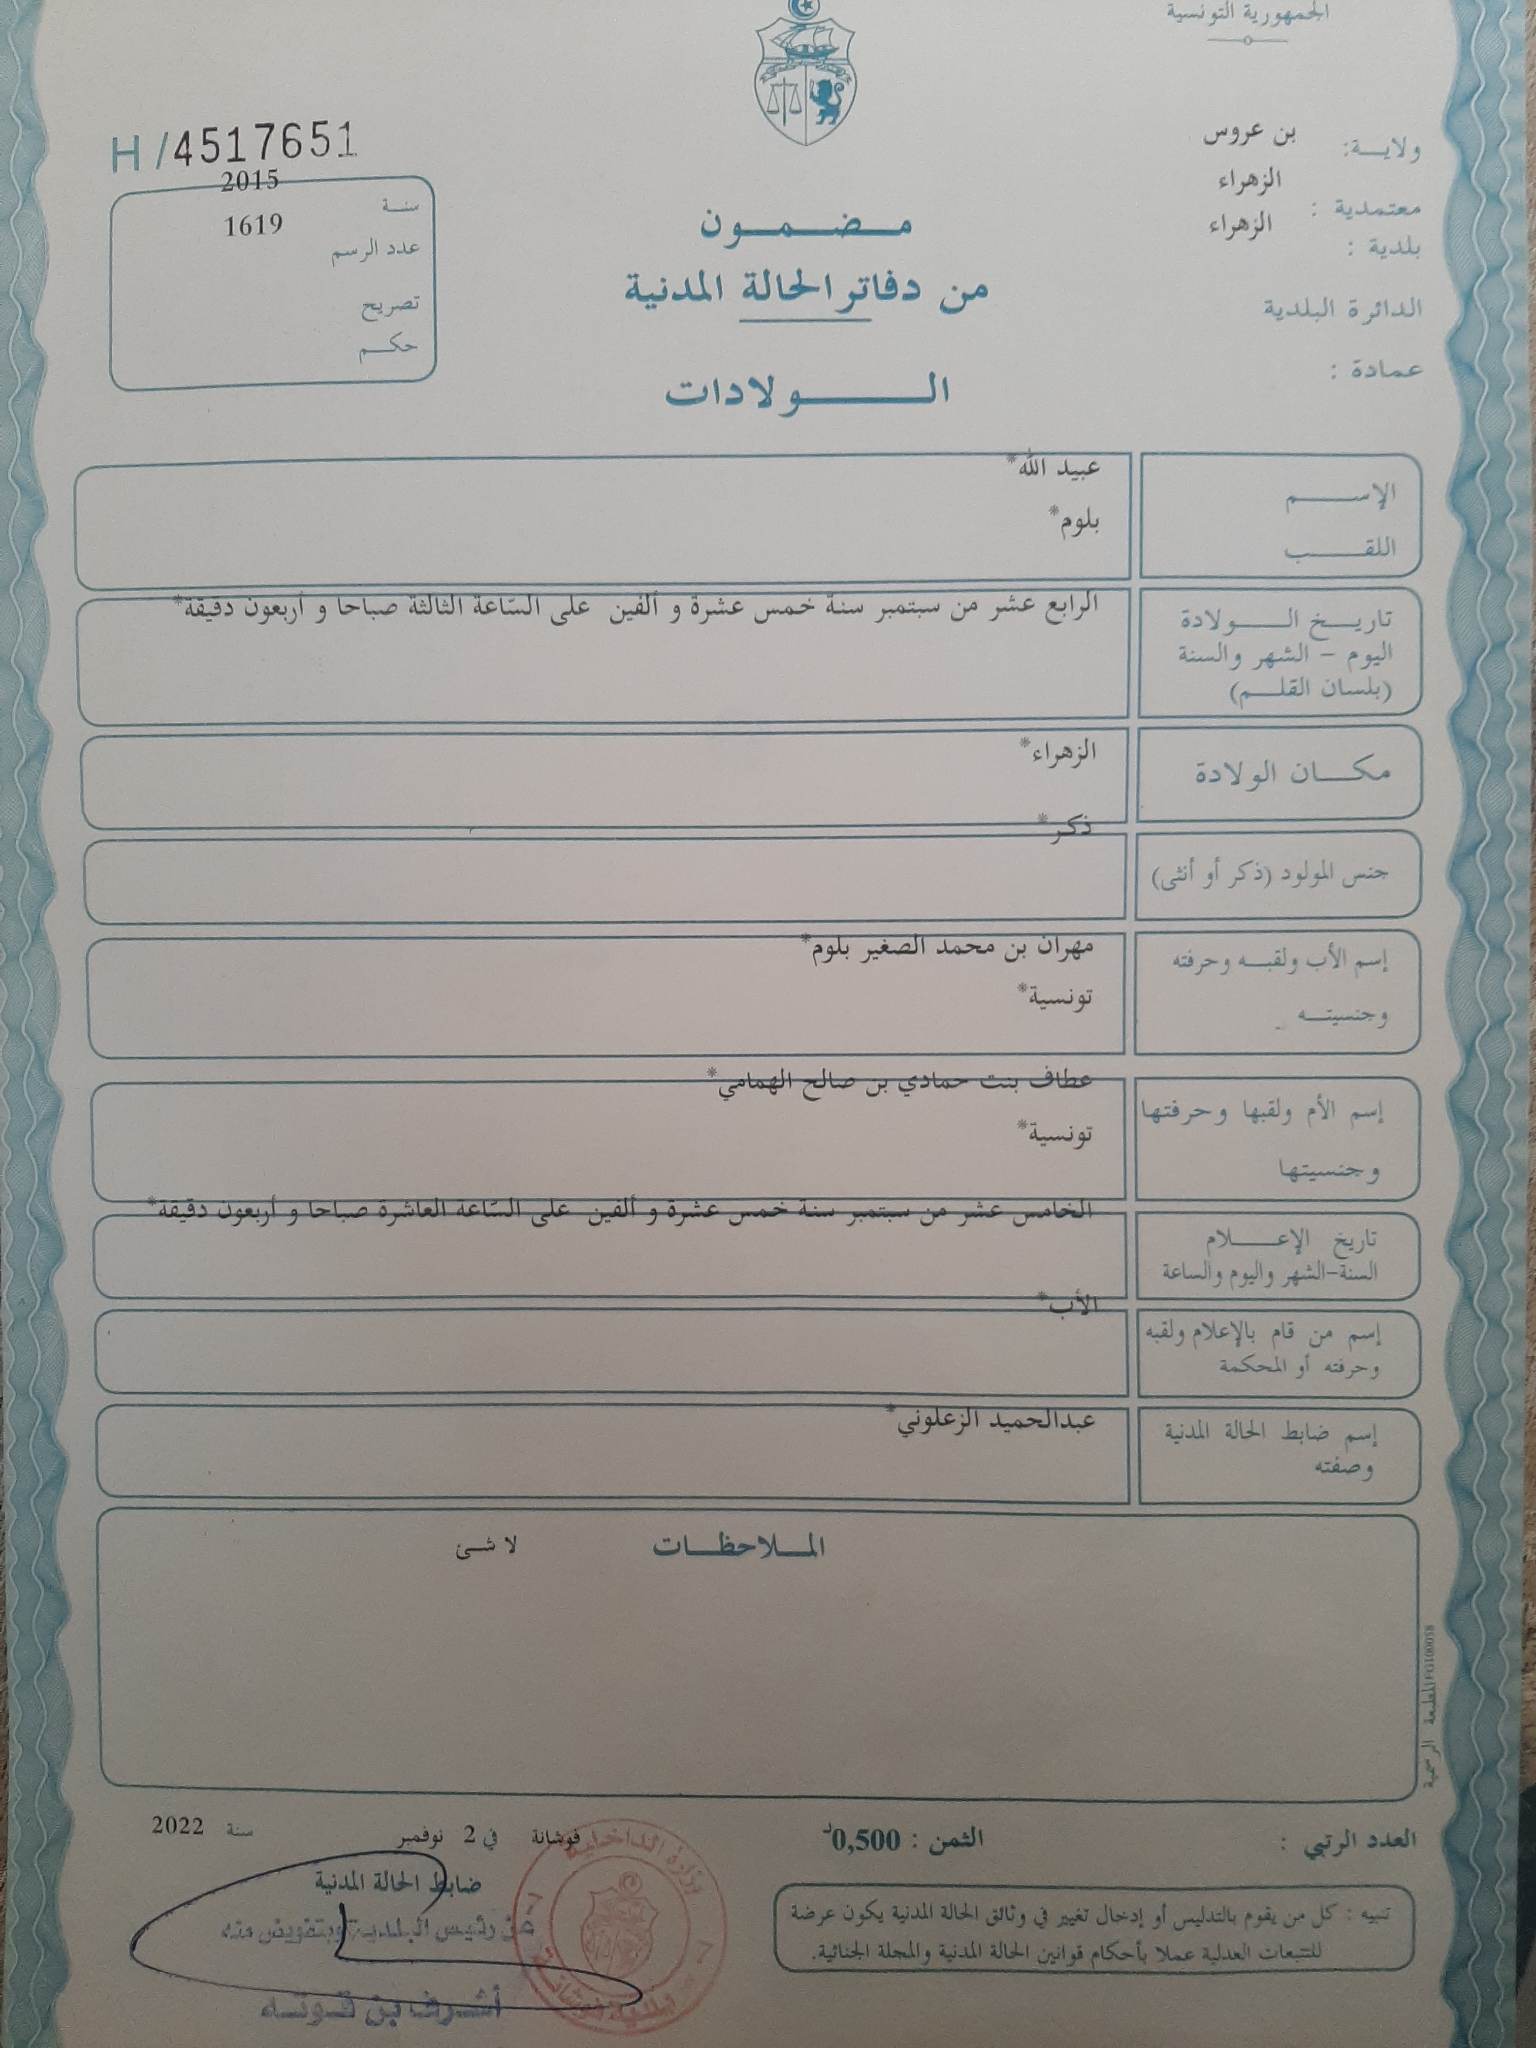 الجمهورية التونسية
ولايـــة: بن عروس
معتمدية : الزهراء
بلدية : الزهراء
الدائرة البلدية
عمادة :
H/4517651
سنـــة 2015
عدد الرسم 1619
تصريح
حكـــم
مـــضـــمـــون
من دفاتر الحالة المدنية
الـــــولادات
الإســــــم عبيد الله*
اللقـــــب بلوم*
تاريـــخ الـــــولادة
اليوم - الشهر والسنة
(بلسان القلـــم)
الرابع عشر من سبتمبر سنة خمس عشرة و ألفين على السّاعة الثالثة صباحا و أربعون دقيقة*
مكـــان الولادة الزهراء*
جنس المولود (ذكر أو أنثى) ذكر*
إسم الأب ولقبـــه وحرفته مهران بن محمد الصغير بلوم*
وجنسيتـــه تونسية*
إسم الأم ولقبها وحرفتها عطاف بنت حمادي بن صالح الهمامي*
وجنسيتها تونسية*
تاريخ الإعـــــلام
السنة-الشهر واليوم والساعة
الخامس عشر من سبتمبر سنة خمس عشرة و ألفين على السّاعة العاشرة صباحا و أربعون دقيقة*
إسم من قام بالإعلام ولقبه
وحرفته أو المحكمة
الأب*
إسم ضابط الحالة المدنية
وصفته
عبدالحميد الزعلوني*
المـــلاحظـــات لا شئ
المطبعة الرسمية FG100058
العدد الرتبي :
الثمن : 0,500د
فوشانة في 2 نوفمبر سنة 2022
ضابط الحالة المدنية
عن رئيس البلدية وبتفويض منه
أشرف بن قوته
وزارة الداخلية
بلدية فوشانة
تنبيه : كل من يقوم بالتدليس أو إدخال تغيير في وثائق الحالة المدنية يكون عرضة
للتتبعات العدلية عملا بأحكام قوانين الحالة المدنية والمجلة الجنائية.